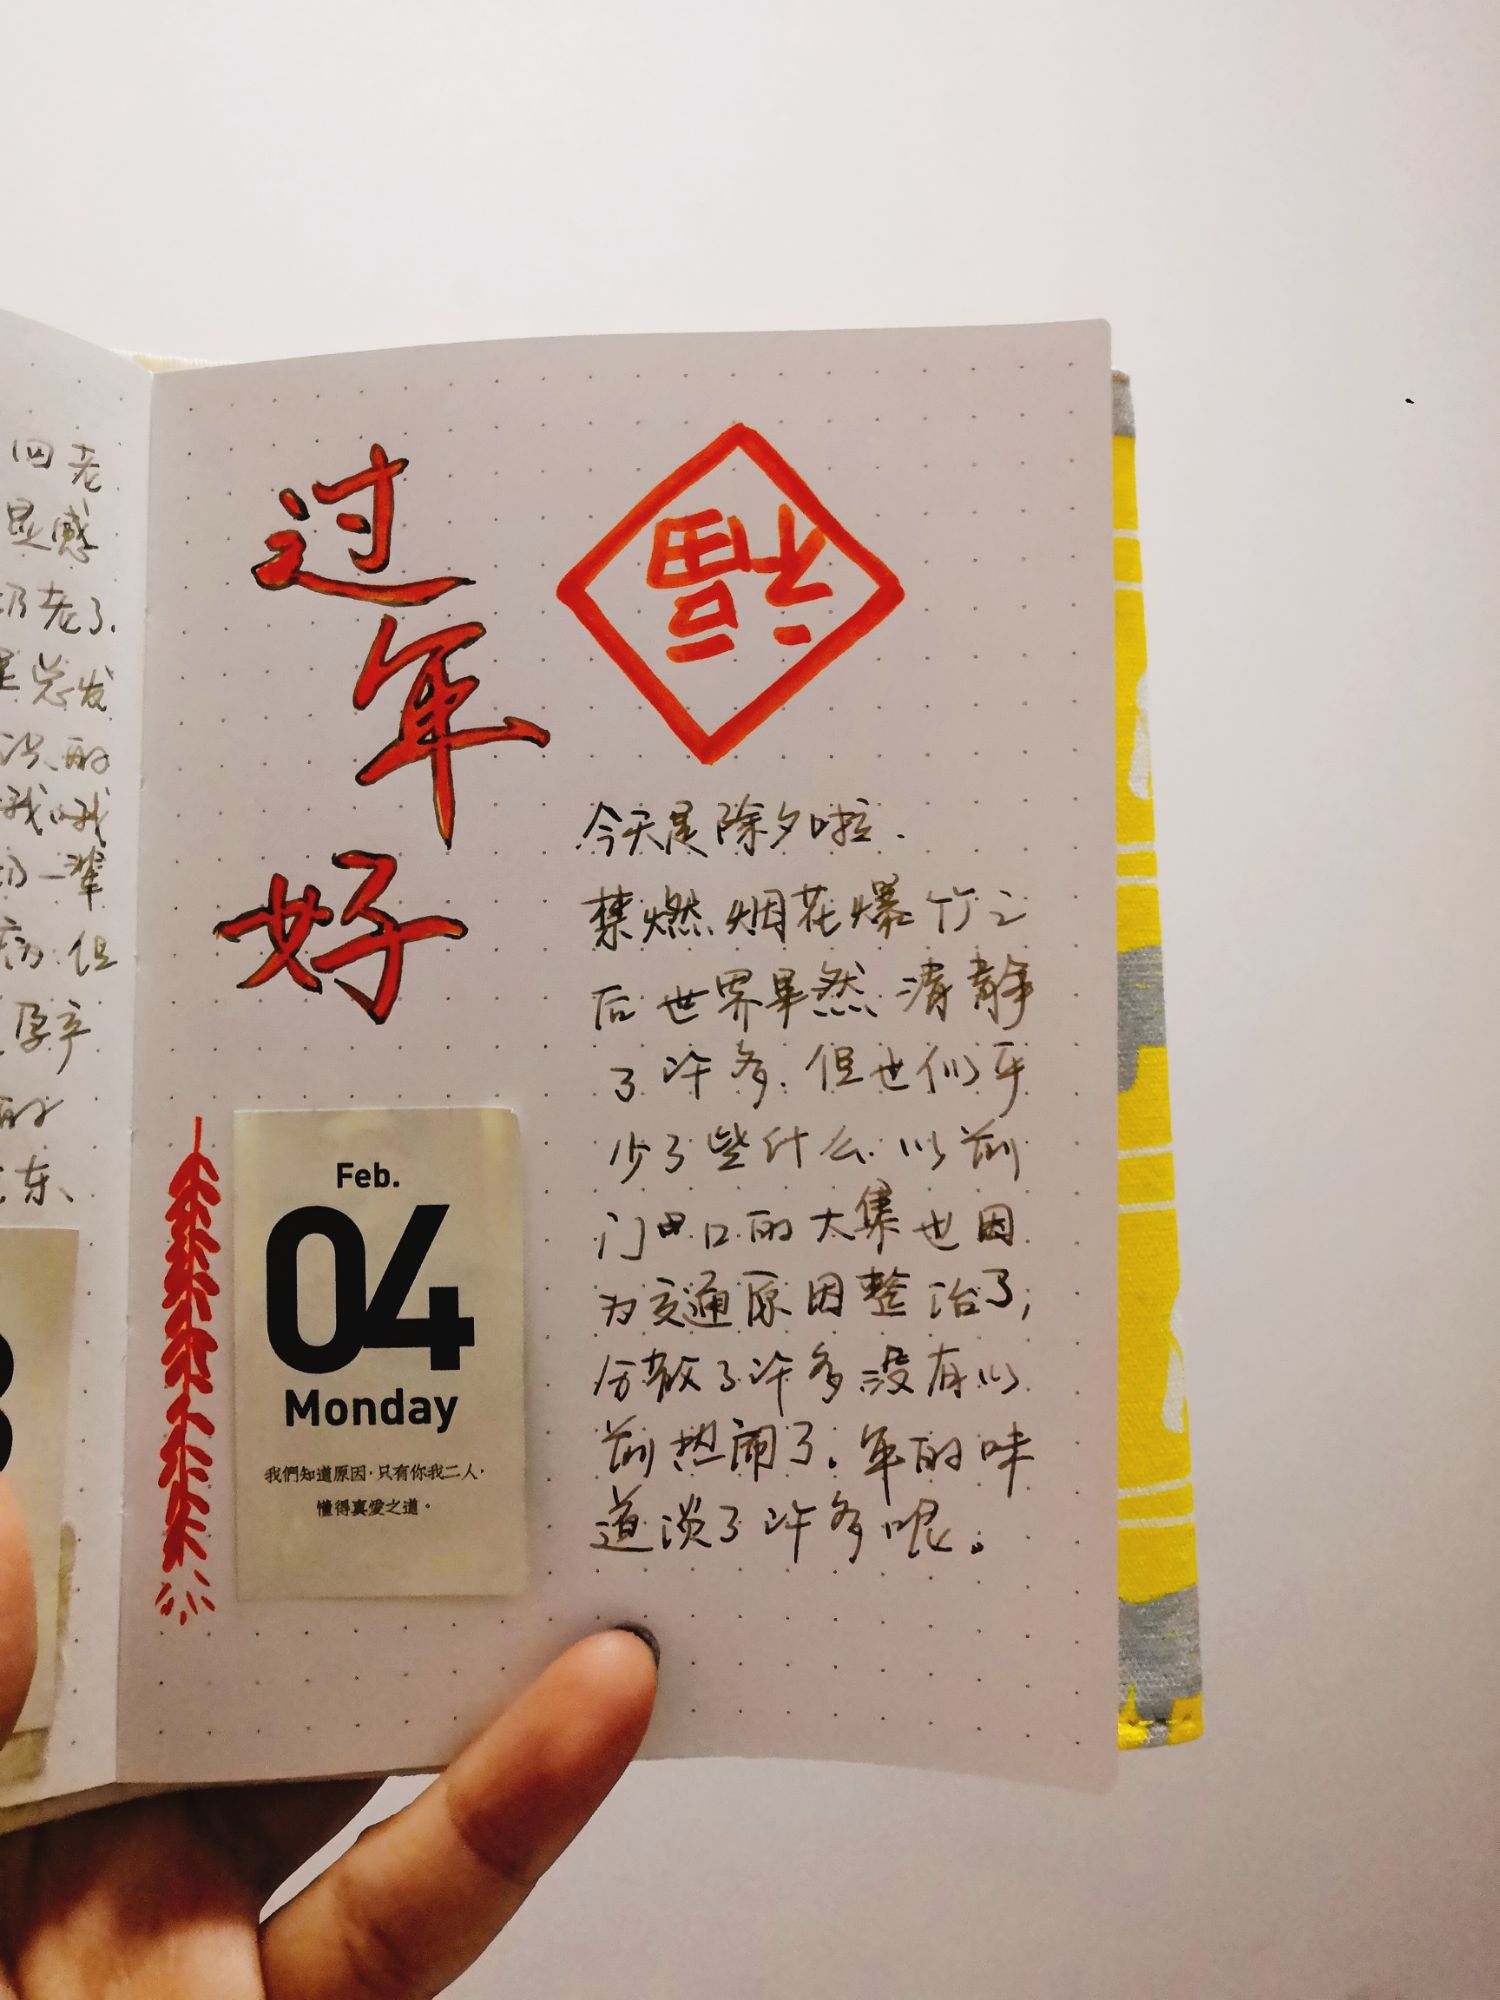 四老
显感
奶老了.
是总发
的
我哦
奶一辈
病但
孕产
的
东、
过
年
好
福
Feb.
04
Monday
我們知道原因·只有你我二人·
懂得真愛之道。
今天是除夕啦.
禁燃烟花爆竹之
后世界果然清静
了许多.但也似乎
少了些什么.以前
门口的大集也因
为交通原因整治了,
分散了许多没有以
前热闹了.年的味
道淡了许多呢。